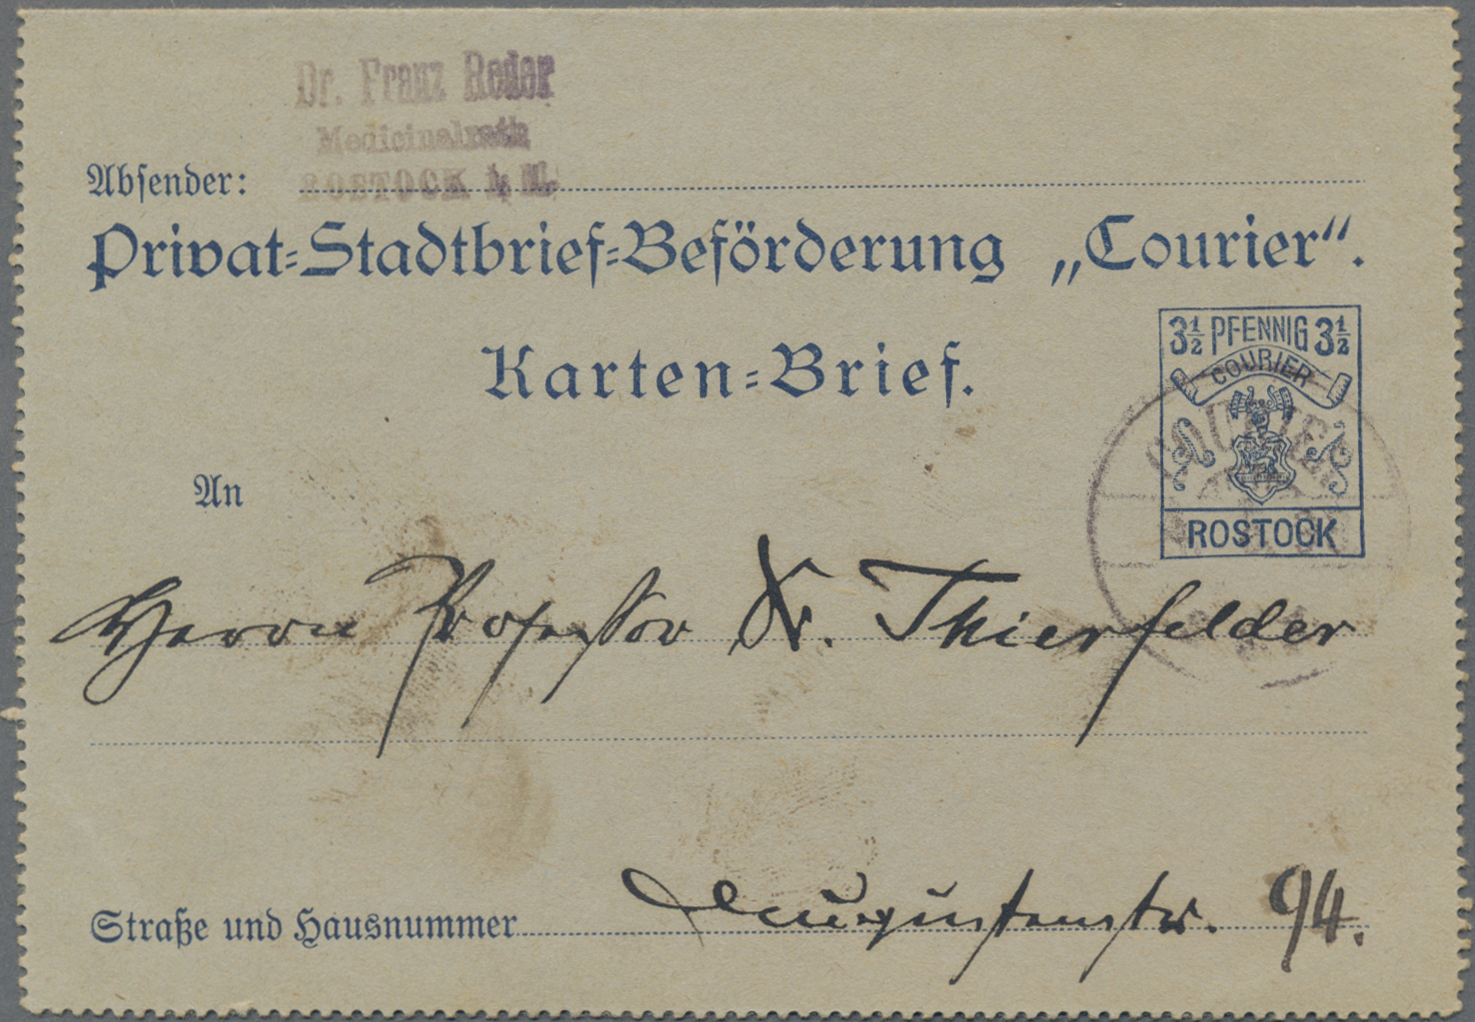 Dr. Franz Reder
Medicinalrath
ROSTOCK i. M.
Absender:
Privat-Stadtbrief-Beförderung „Courier“.
Karten-Brief.
3½ PFENNIG 3½
COURIER
ROSTOCK
COURIER
An
Herrn Professor Dr. Thierfelder
Straße und Hausnummer Augustenstr. 94.